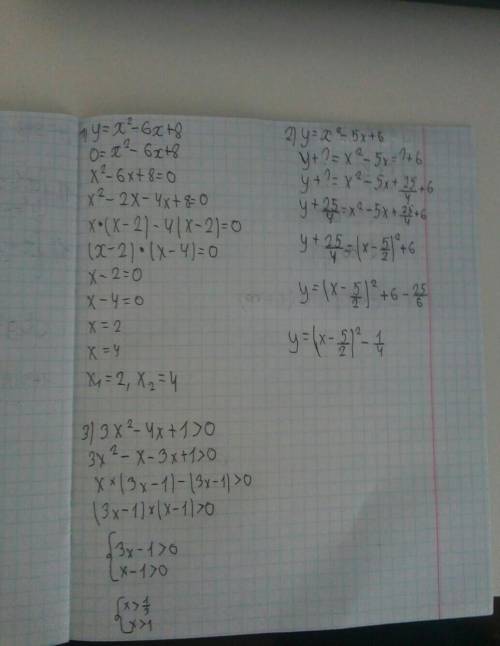 1) y=x²-6x+8
0=x²-6x+8
x²-6x+8=0
x²-2x-4x+8=0
x•(x-2)-4(x-2)=0
(x-2)•(x-4)=0
x-2=0
x-4=0
x=2
x=4
x₁=2, x₂=4
2) y=x²-5x+6
y+?=x²-5x=?+6
y+?=x²-5x+25/4+6
y+25/4=x²-5x+25/4+6
y+25/4=(x-5/2)²+6
y=(x-5/2)²+6-25/6
y=(x-5/2)²-1/4
3) 3x²-4x+1>0
3x²-x-3x+1>0
x×(3x-1)-(3x-1)>0
(3x-1)×(x-1)>0
{3x-1>0
x-1>0
{x>1/3
x>1